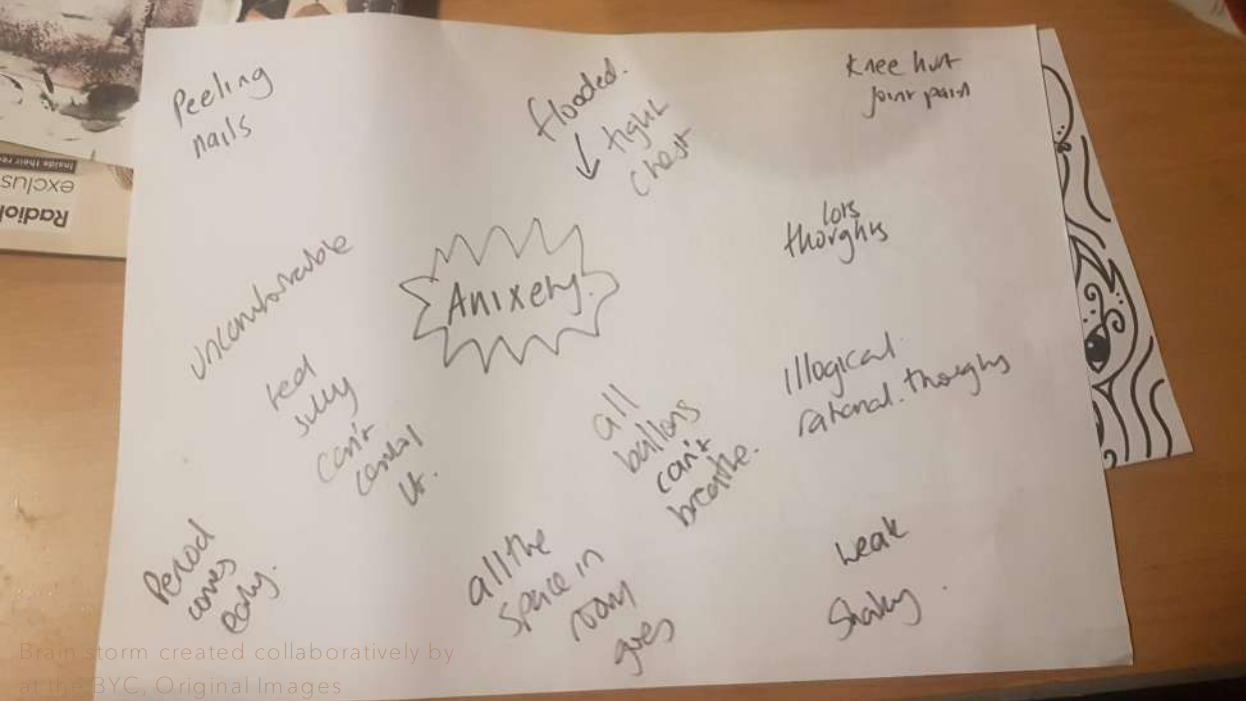 Peeling
nails
flooded.
tight
chest
Knee hurt
Joint pain
lots
thoughts
uncomfortable
Anixety.
feel
silly
can't
control
it.
all
ballons
can't
breathe.
illogical.
rational. thoughts
Period
comes
early.
all the
space in
room
goes
weak
Shaky.
Inside their
exclus
Brain storm created collaboratively by
at the BYC, Original Images